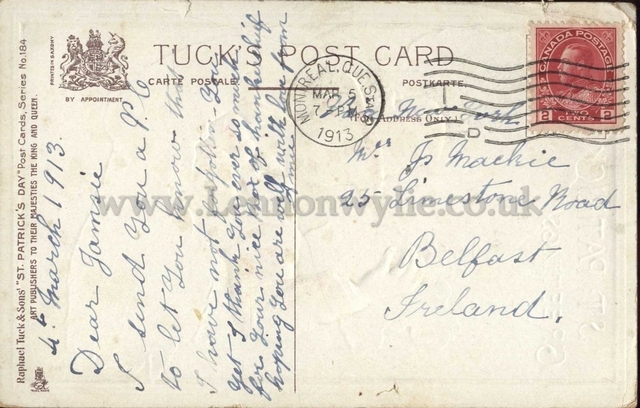 Raphael Tuck & Sons' "ST. PATRICK'S DAY" Post Cards, Series No. 184
ART PUBLISHERS TO THEIR MAJESTIES THE KING AND QUEEN.
PRINTED IN SAXONY
BY APPOINTMENT
TUCK'S POST CARD
CARTE POSTALE
POSTKARTE
(FOR ADDRESS ONLY)
MONTREAL, QUE.
MAR 5
7 PM
1913
CANADA POSTAGE
2 TWO CENTS 2
4th March 1913.
Dear Jamsie
I send you a P.C
to let you know that
I have not forgotten you
yet I thank you ever so much
for your nice box of handkerchief
hoping you are all well with love from
Via New York
Mr Js Mackie
25 Limestone Road
Belfast
Ireland.
www.Lennonwylie.co.uk